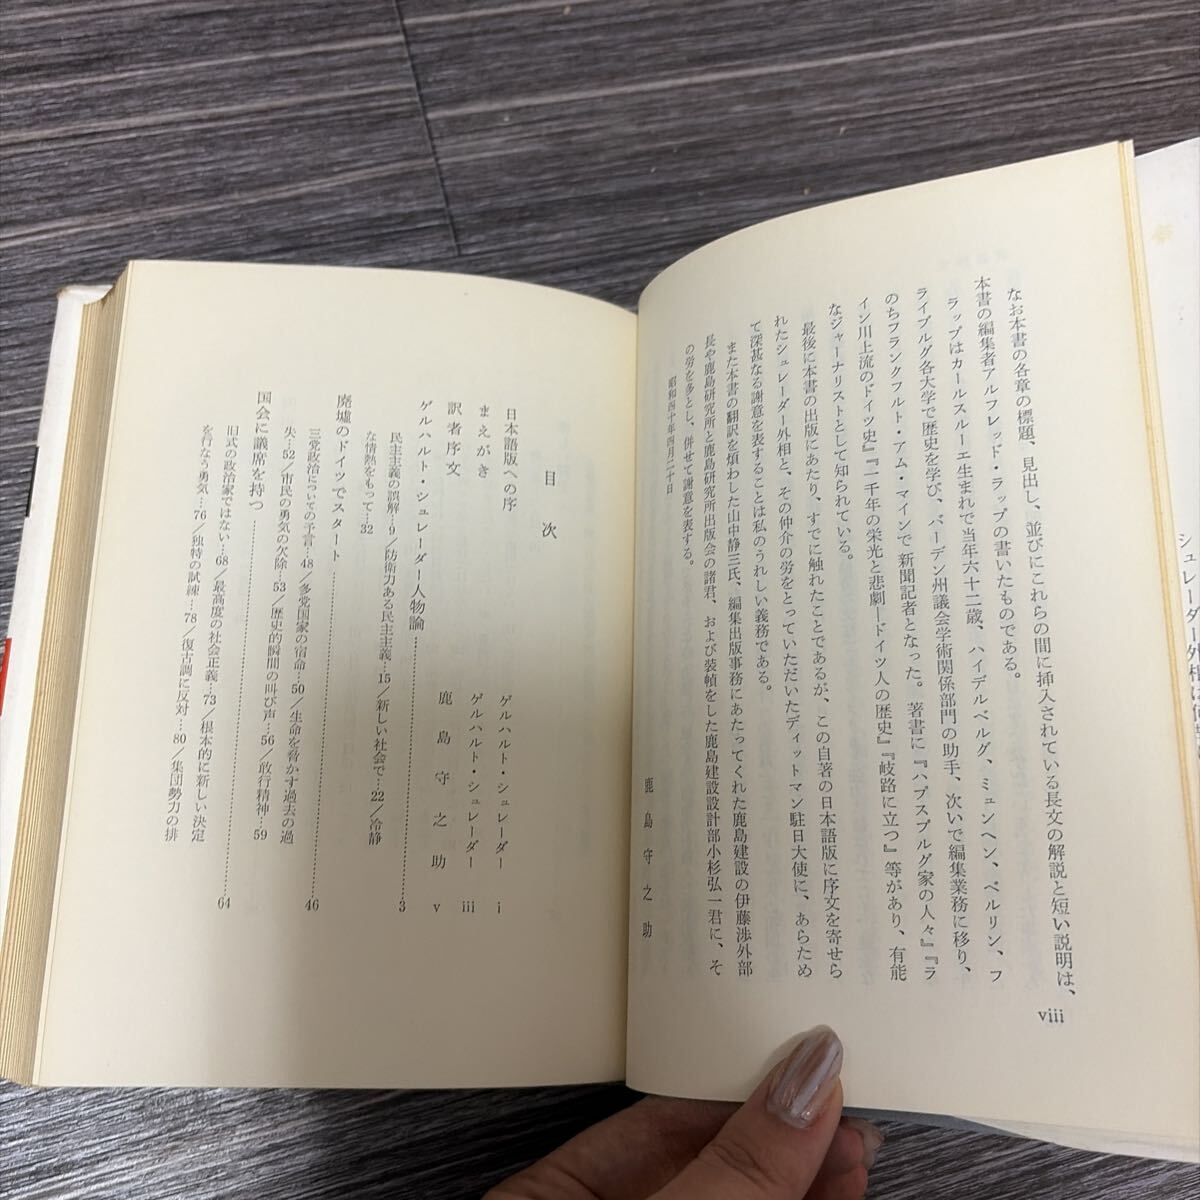 なお本書の各章の標題、見出し、並びにこれらの間に挿入されている長文の解説と短い説明は、
本書の編集者アルフレッド・ラップの書いたものである。
ラップはカールスルーエ生まれで当年六十二歳、ハイデルベルグ、ミュンヘン、ベルリン、フ
ライブルグ各大学で歴史を学び、バーデン州議会学術関係部門の助手、次いで編集業務に移り、
のちフランクフルト・アム・マインで新聞記者となった。著書に『ハプスブルグ家の人々』『ラ
イン川上流のドイツ史』『一千年の栄光と悲劇―ドイツ人の歴史』『岐路に立つ』等があり、有能
なジャーナリストとして知られている。
最後に本書の出版にあたり、すでに触れたことであるが、この自著の日本語版に序文を寄せら
れたシュレーダー外相と、その仲介の労をとっていただいたディットマン駐日大使に、あらため
て深甚なる謝意を表することは私のうれしい義務である。
また本書の翻訳を煩わした山中静三氏、編集出版事務にあたってくれた鹿島建設の伊藤渉外部
長や鹿島研究所と鹿島研究所出版会の諸君、および装幀をした鹿島建設設計部小杉弘一君に、そ
の労を多とし、併せて謝意を表する。
昭和四十年四月二十日
鹿島守之助
viii
目次
日本語版への序 ゲルハルト・シュレーダー i
まえがき ゲルハルト・シュレーダー iii
訳者序文 鹿島守之助 v
ゲルハルト・シュレーダー人物論 3
民主主義の誤解…9／防衛力ある民主主義…15／新しい社会で…22／冷静
な情熱をもって…32
廃墟のドイツでスタート 46
三党政治についての予言…48／多党国家の宿命…50／生命を脅かす過去の過
失…52／市民の勇気の欠除…53／歴史的瞬間の叫び声…56／敢行精神…59
国会に議席を持つ 64
旧式の政治家ではない…68／最高度の社会正義…73／根本的に新しい決定
を行なう勇気…76／独特の試練…78／復古調に反対…80／集団勢力の排